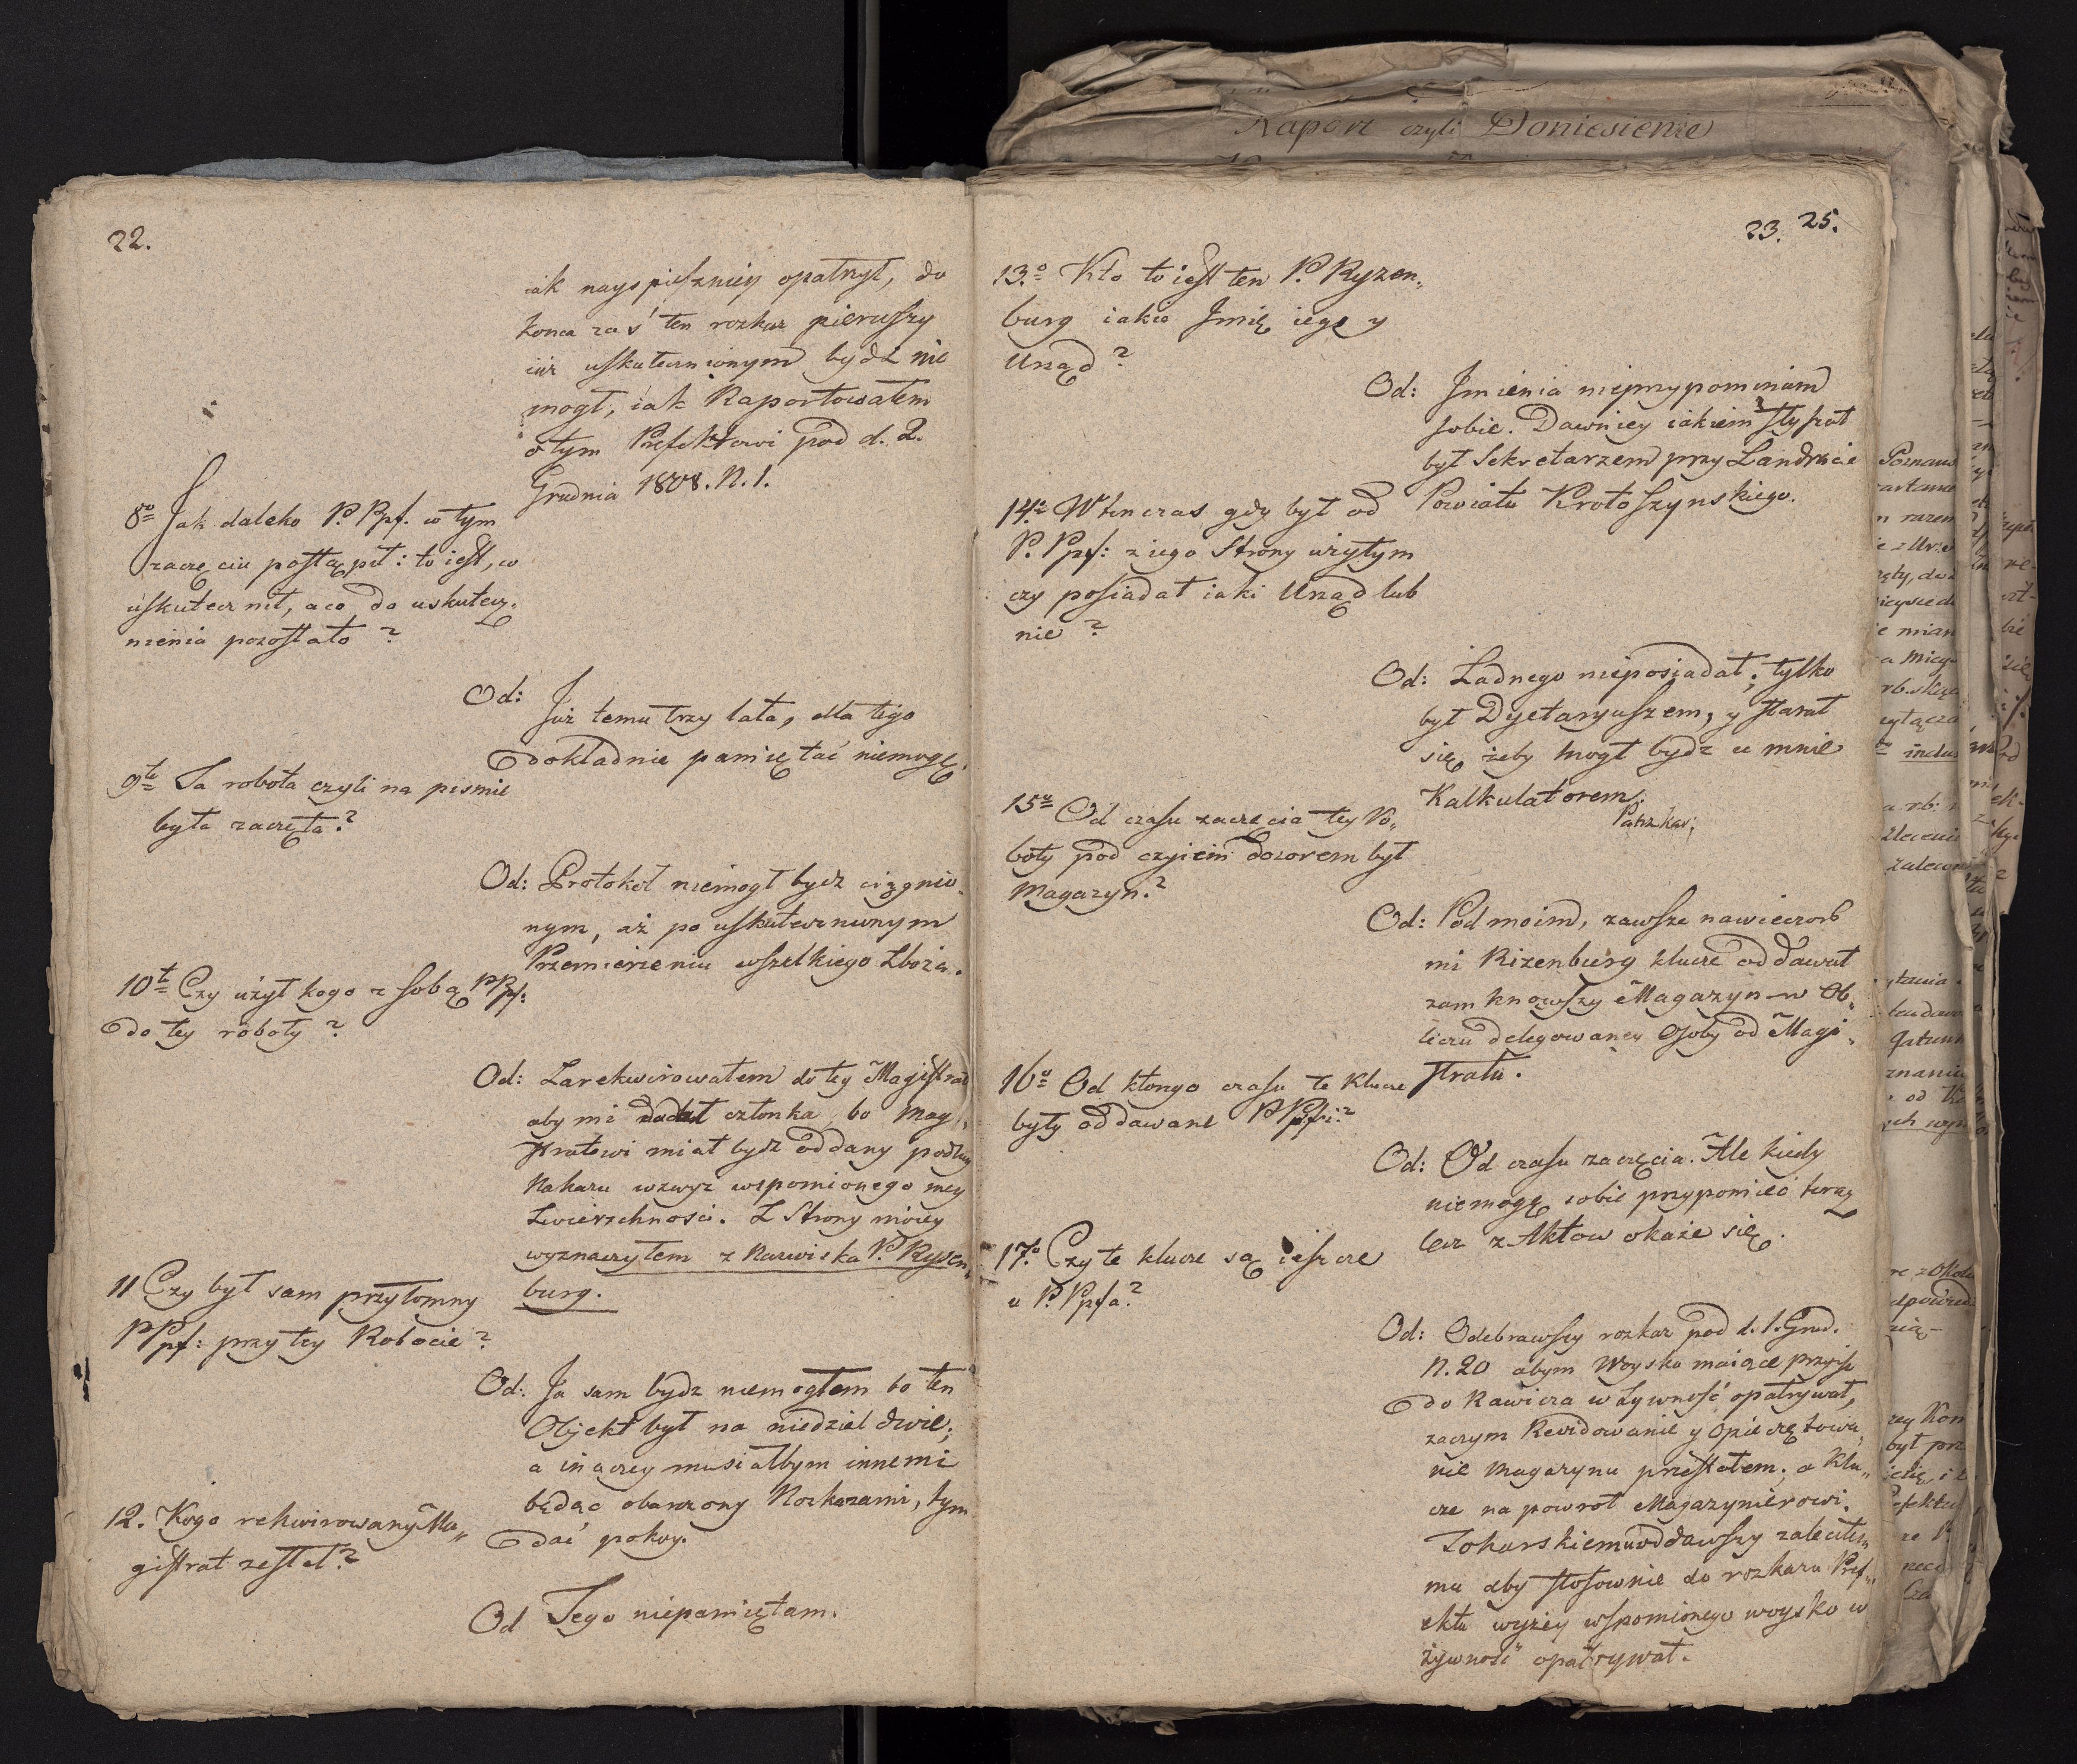 22.
iak nayspieszniey opatrzył, do
konca zaś ten rozkaz pierwszy
iuż uskutecznionym bydź nie
mogł, iak Raportowałem
o tym Prefektowi pod d. 2.
Grudnia 1808. N. 1.
8o Jak daleko P. Ppf. w tym
zaczęciu postąpił: to iest, co
uskutecznił, a co do uskutecz„
nienia pozostało?
Od: Już temu trzy lata, dla tego
dokładnie pamiętać niemogę.
9te Ta robota czyli na pismie
była zaczęta?
Od: Protokół niemogł bydz ciągnio„
nym, aż po uskutecznionym
Przemierzeniu wszelkiego Zboża.
10te Czy użył kogo z sobą PPpf:
do tey roboty?
Od: Zarekwirowałem do tey Magistrat
aby mi dodał członka, bo Magi„
stratowi miał bydz oddany podług
Nakazu wzwyz wspomionego mey
Zwierzchnosci. Z Strony moiey
wyznaczyłem z Nazwiska P. Rysen„
burg.
11 Czy był sam przytomny
PPpf: przy tey Robocie?
Od: Ja sam bydz niemogłem bo ten
Objekt był na niedziel dwie;
a inaczey musiałbym innemi
będąc obarczony Rozkazami, tym
dać pokoy.
12. Kogo rekwirowany Ma„
gistrat zesłał?
Od Tego niepamiętam.
23. 25.
13o Kto to iest ten P. Ryzen„
burg iakie Jmię iego y
Urząd?
Od: Jmienia nieprzypominam
sobie. Dawniey iakiem słyszał
był Sekretarzem przy Landracie
Powiatu Krotoszynskiego.
14te W ten czas gdy był od
P. Ppf: z iego Strony użytym
czy posiadał iaki Urząd lub
nie?
Od: Żadnego nieposiadał; tylko
był Dyetaryuszem, y starał
się żeby mogł bydz u mnie
Kalkulatorem.
15o Od czasu zaczęcia tey Ro„
boty pod czyiem dozorem był
Magazyn?
Od: Pod moim, zawsze na wieczorb
mi Rizenburg klucze oddawał
zamknowszy Magazyn w Ob„
liczu delegowaney Osoby od Magi„
stratu.
16o Od ktorego czasu te Klucze
były oddawane PPpfi?
Od: Od czasu zaczęcia. Ale kiedy
niemogę sobie przypomieć teraz
lecz z Aktow okaże się.
17o Czy te klucze są ieszcze
u P. Ppfa?
Od: Odebrawszy rozkaz pod d. 1. Grud.
N. 20 abym Woysko maiące przyisc
do Rawicza w Żywność opatrywał,
zaczym Rewidowanie y opieczętowa„
nie Magazynu przestałem, a Klu„
cze na powrot Magazynierowi
Tokarskiemu oddawszy zaleciłem
mu aby stosownie do rozkazu Pref„
ekta wyżey wspomionego woysko w
żywność opatrywał.
Raport czyli Doniesienie